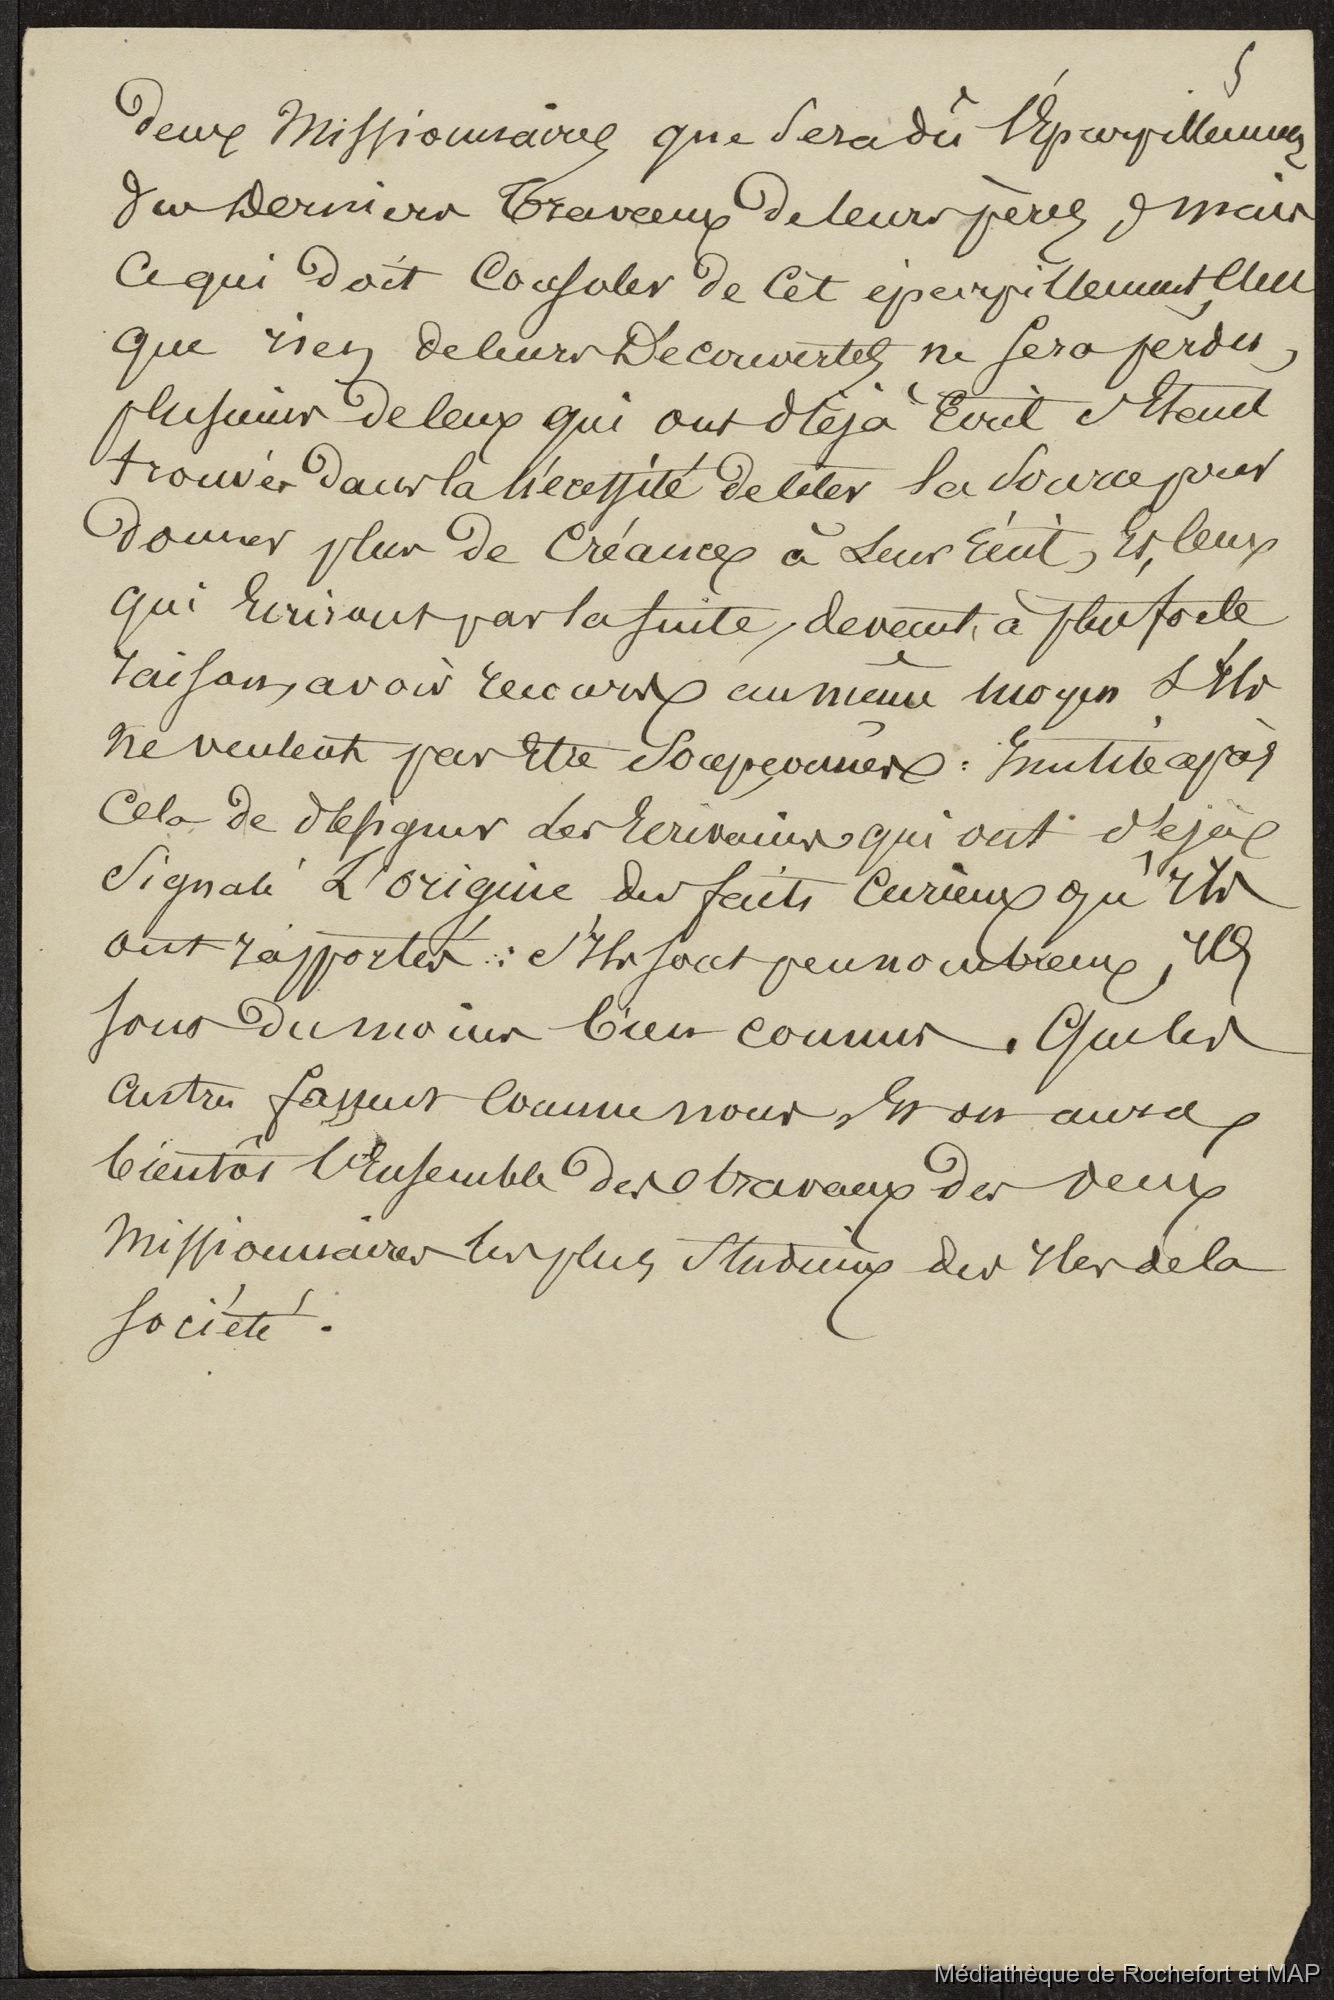 5
deux Missionnaires que sera dû l'Éparpillement
des Derniers travaux de leurs pères ; mais
Ce qui doit Consoler de Cèt éparpillement, C'est
que rien de leurs Découvertes ne sera perdu,
plusieurs de Ceux qui ont déjà Écrit s'Étant
trouvés dans la nécessité de Citer la Source pour
donner plus de Créance à Leur récit, Et, Ceux
qui Ecriront par la suite, devant, à plus forte
raison, avoir recours au même moyen S'Ils
ne veulent pas Être Soupçonnés : Inutile après
Cela de désigner Les Ecrivains qui ont déjà
Signalé L'origine des faits Curieux qu'Ils
ont rapportés : S'Ils sont peu nombreux, Ils
sont du moins bien connus. Que les
autres fassent Comme nous, Et on aura
bientôt l'Ensemble des travaux des deux
Missionnaires les plus Studieux des Iles de la
société.
Médiathèque de Rochefort et MAP